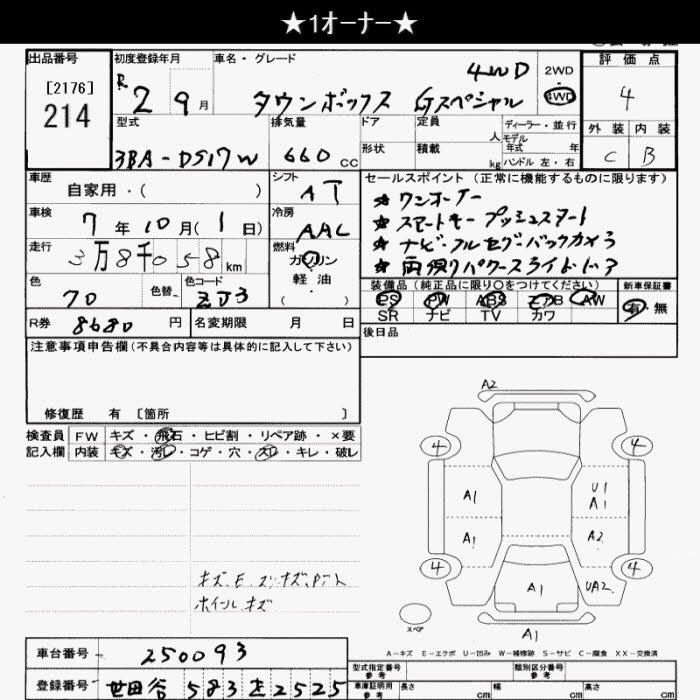 ★1オーナー★
出品番号
[2176]
214
初度登録年月
R 2 9 月
車名・グレード
4WD
タウンボックス Gスペシャル
2WD
4WD
評価点
4
外装 内装
C B
型式
3BA-DS17W
排気量
660 CC
ドア
形状
定員
人
積載
kg
ディーラー・並行
モデル
年式 年
ハンドル 左・右
車歴
自家用・( )
シフト
AT
車検
7年10月(1日)
冷房
AAC
走行
3万8千058km
燃料
ガソリン
軽油
( )
色
70
色替
色コード
ZJ3
R券
8680 円
名変期限 月 日
セールスポイント(正常に機能するものに限ります)
★ ワンオーナー
★ スマートキー プッシュスタート
★ ナビ・フルセグ・バックカメラ
★ 両側パワースライドドア
装備品(純正品に限り○をつけてください)
PS PW ABS エアB AW
SR ナビ TV カワ
新車保証書
有・無
後日品
注意事項申告欄(不具合内容等は具体的に記入して下さい)
修復歴 有 [箇所 ]
検査員
記入欄
FW キズ・飛石・ヒビ割・リペア跡・×要
内装 キズ・汚レ・コゲ・穴・スレ・キレ・破レ
キズ、E スリキズ、Pテト
ホイールキズ
A2
4
4
A1
U1
A1
A1
A2
4
4
A1
UA2
スペア
A1
A-キズ E-エクボ U-凹み W-補修跡 S-サビ C-腐食 XX-交換済
車台番号
250093
登録番号
世田谷 583 を 2525
型式指定番号
参考
類別区分番号
参考
車庫証明用
参考
長さ cm
幅 cm
高さ cm